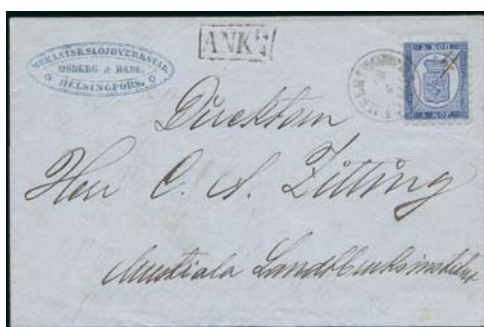 MEKANISK SLÖJDVERKSTAD
OSBERG & BADE.
HELSINGFORS.
ANK 14/4
5 KOP.
5 KOP.
Direktorn
Herr C. A. Zitting
Mustiala Landtbruksinstitut